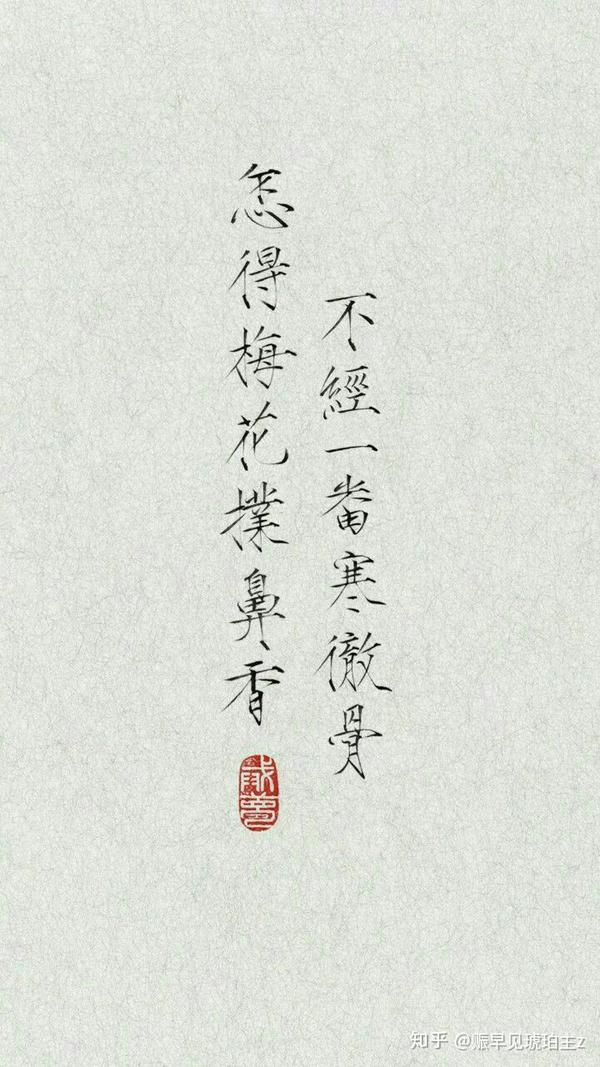 不經一番寒徹骨
怎得梅花撲鼻香
知乎 @赈早见琥珀主z